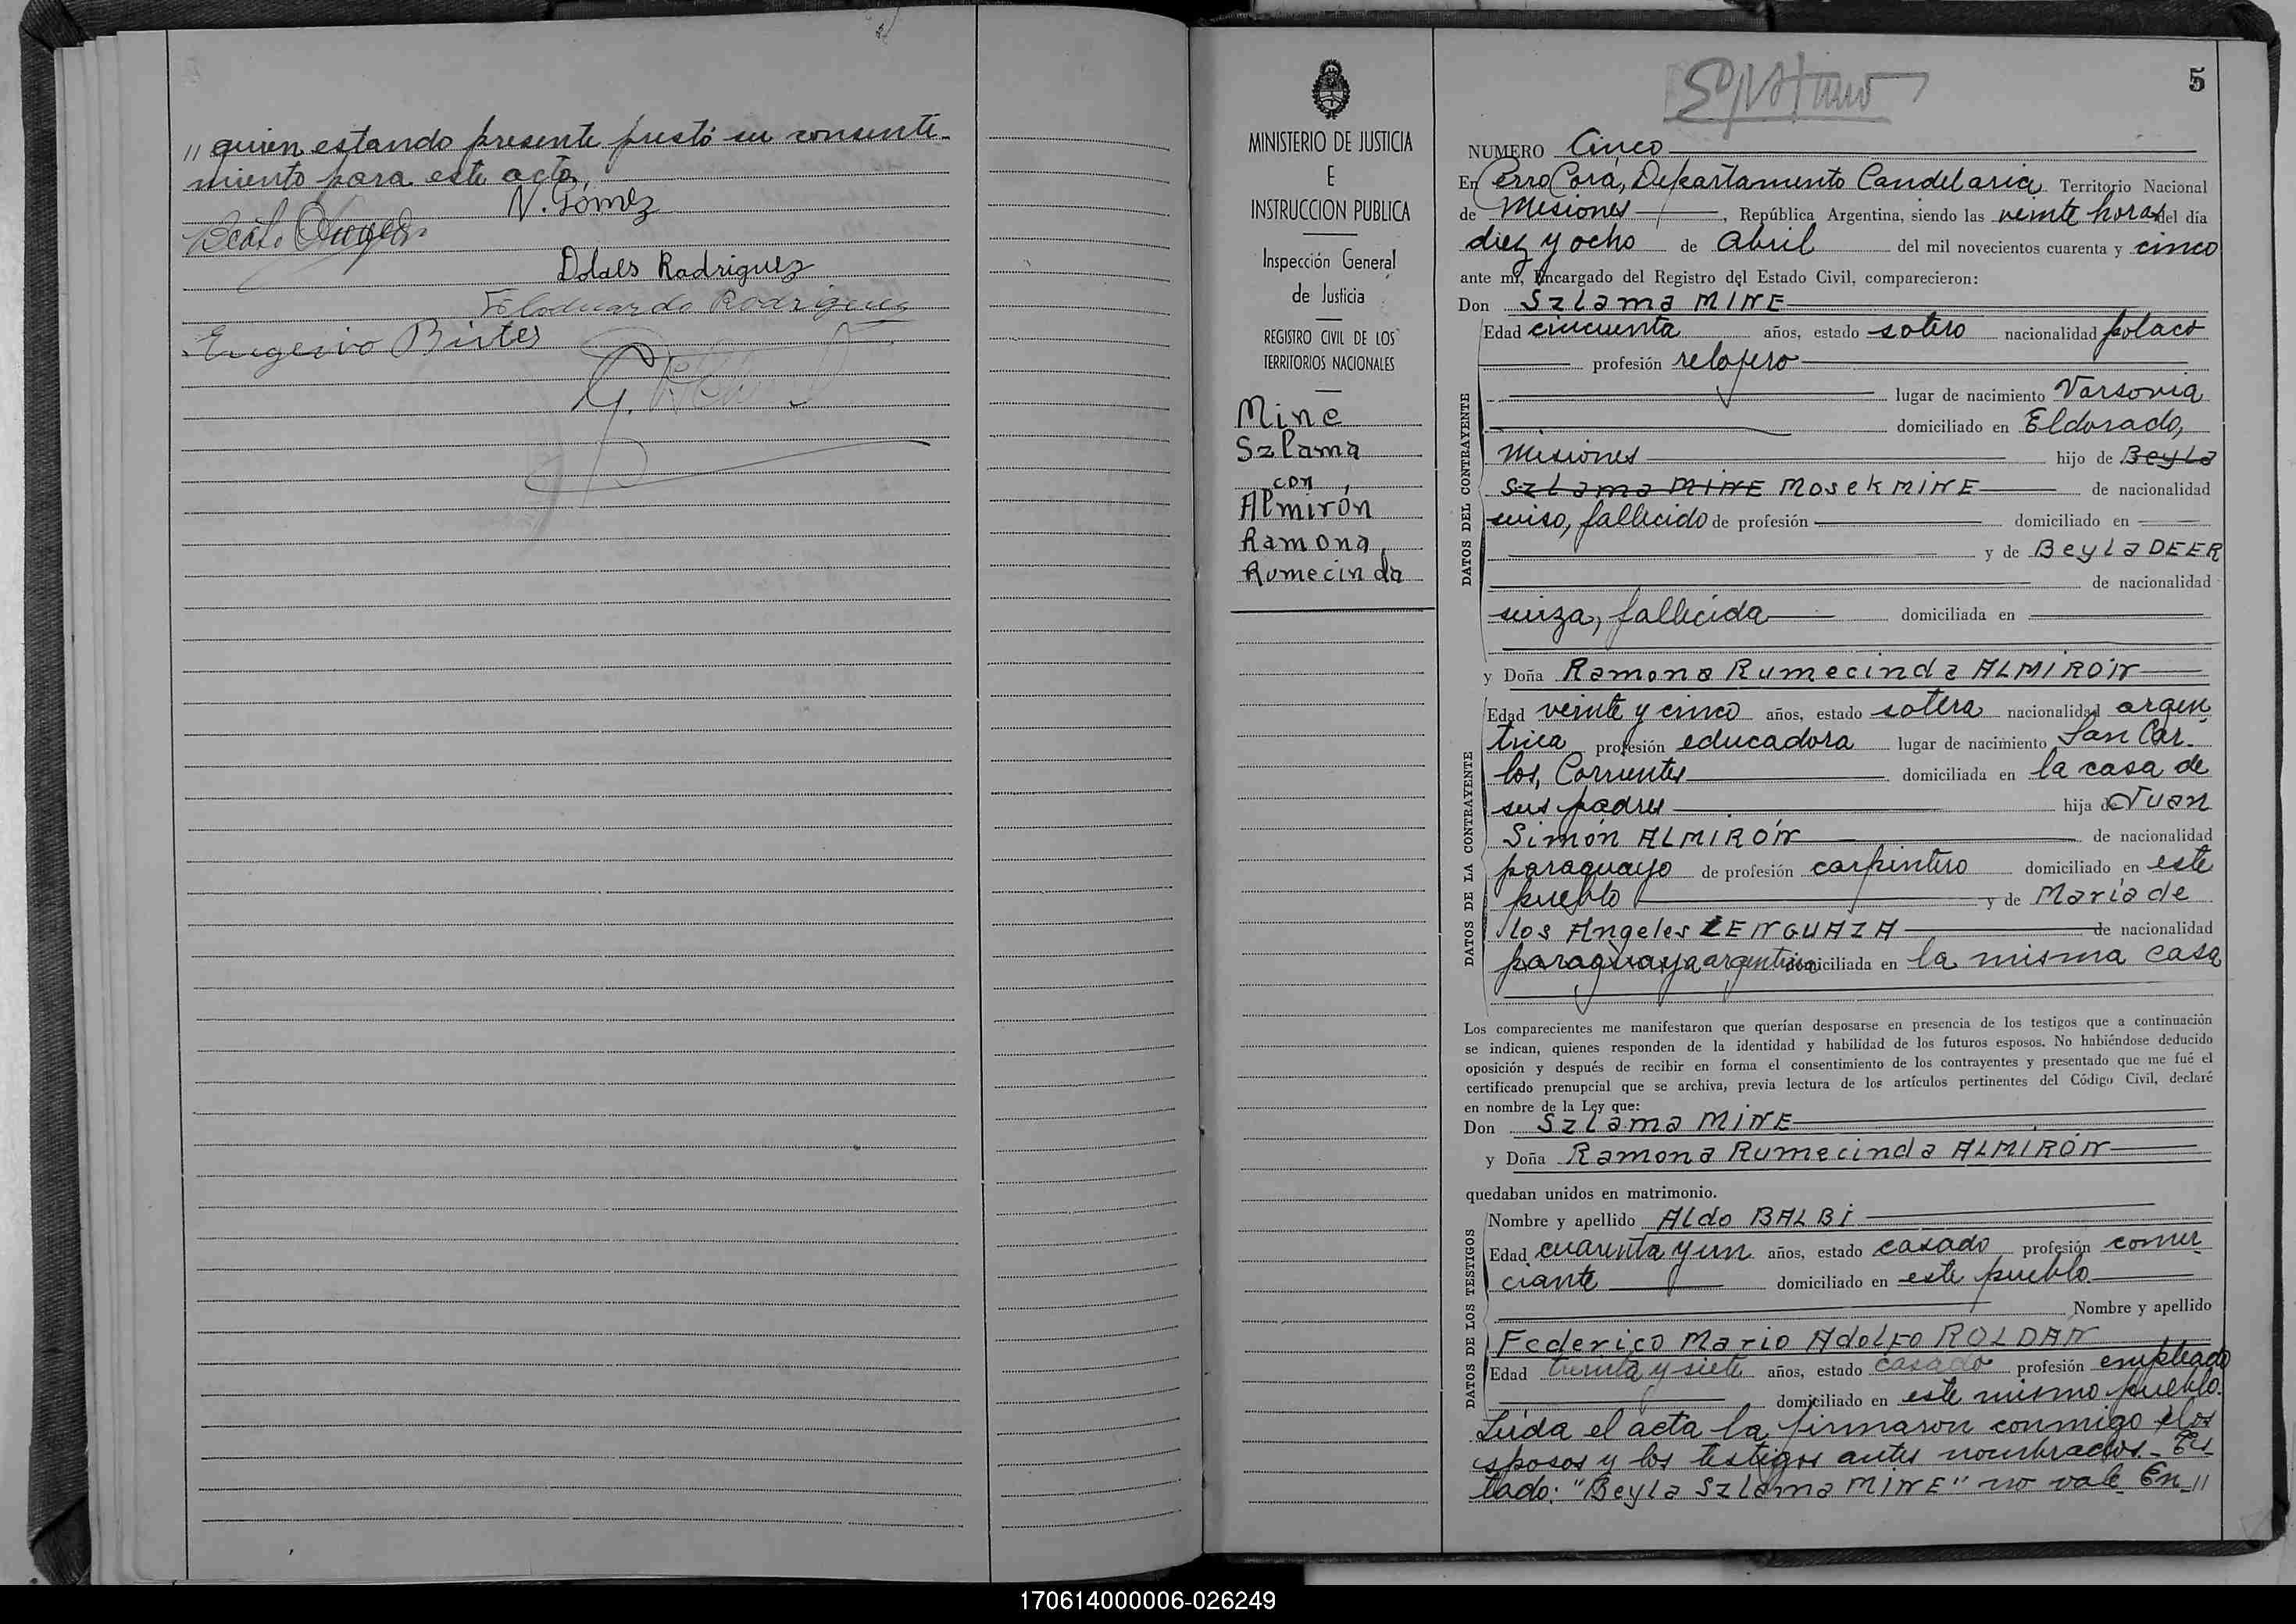 " quien estando presente prestó su consenti-
miento para este acto.
N. Gómez
Dolaes Radriguez
Rodrigues
Eugenio
MINISTERIO DE JUSTICIA
E
INSTRUCCION PUBLICA
Inspección General
de Justicia
REGISTRO CIVIL DE LOS
TERRITORIOS NACIONALES
Mine
Szlama
con
Almirón
Ramona
Rumecinda
5
NUMERO Cinco
En Cerro Corá, Departamento Candelaria Territorio Nacional
de Misiones, República Argentina, siendo las veinte horas del día
diez y ocho de Abril del mil novecientos cuarenta y cinco
ante mí, Encargado del Registro del Estado Civil, comparecieron:
Don Szlama MINE
DATOS DEL CONTRAYENTE
Edad cincuenta años, estado soltero nacionalidad polaco
profesión relojero
lugar de nacimiento Varsovia
domiciliado en Eldorado,
Misiones hijo de Beyla
Szlama MINE Mosek MINE de nacionalidad
suiso, fallecido de profesión domiciliado en
y de Beyla DEER
de nacionalidad
suiza, fallecida domiciliada en
y Doña Ramona Rumecinda ALMIRÓN
DATOS DE LA CONTRAYENTE
Edad veinte y cinco años, estado soltera nacionalidad argen
tina profesión educadora lugar de nacimiento San Car-
los, Corrientes domiciliada en la casa de
sus padres hija de Juan
Simón ALMIRÓN de nacionalidad
paraguayo de profesión carpintero domiciliado en este
pueblo y de María de
los Angeles LENGUAZA de nacionalidad
paraguaya argentina domiciliada en la misma casa
Los comparecientes me manifestaron que querían desposarse en presencia de los testigos que a continuación
se indican, quienes responden de la identidad y habilidad de los futuros esposos. No habiéndose deducido
oposición y después de recibir en forma el consentimiento de los contrayentes y presentado que me fué el
certificado prenupcial que se archiva, previa lectura de los artículos pertinentes del Código Civil, declaré
en nombre de la Ley que:
Don Szlama MINE
y Doña Ramona Rumecinda ALMIRÓN
quedaban unidos en matrimonio.
DATOS DE LOS TESTIGOS
Nombre y apellido Aldo BALBI
Edad cuarenta y un años, estado casado profesión comer
ciante domiciliado en este pueblo
Nombre y apellido
Federico Mario Adolfo ROLDAN
Edad treinta y siete años, estado casado profesión empleado
domiciliado en este mismo pueblo.
Leída el acta la firmaron conmigo los
esposos y los testigos antes nombrados.- Tes-
tado: "Beyla Szlama MINE" no vale En "
170614000006-026249